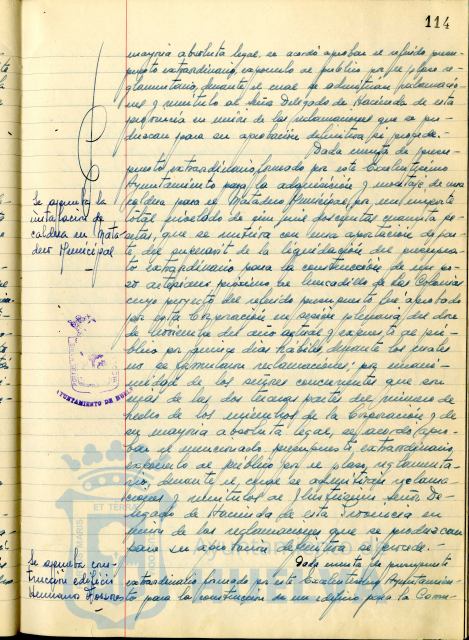 114
mayoría absoluta legal, se acordó aprobar el referido presu-
puesto extraordinario, exponerlo al público por el plazo re-
glamentario, durante el cual se admitirán reclamacio-
nes y remitirlo al Señor Delegado de Hacienda de esta
provincia en unión de las reclamaciones que se pro-
duzcan para su aprobación definitiva si procede.-
Se aprueba la
instalación de
caldera en Mata-
dero Municipal
Dada cuenta de presu-
puesto extraordinario, formado por este Excelentísimo
Ayuntamiento para la adquisición y montaje de una
caldera para el Matadero Municipal, por un importe
total nivelado de cien mil doscientas cuarenta pe-
setas, que se nutrirá con una aportación de par-
te del superávit de la liquidación del presupues-
to extraordinario para la construcción de un po-
zo artesiano próximo al de las Colonias
cuyo proyecto del referido presupuesto fue aprobado
por esta Corporación en sesión plenaria del doce
de Noviembre del año actual y expuesto al pú-
blico por quince días hábiles, durante los cuales
no se formularon reclamaciones; por unani-
midad de los señores concurrentes que son
más de las dos terceras partes del número de
hecho de los miembros de la Corporación y de
su mayoría absoluta legal, se acordó apro-
bar el mencionado presupuesto extraordinario,
exponerlo al público por el plazo reglamenta-
rio, durante el cual se admitirán reclama-
ciones y remitirlo al Ilustrísimo Señor De-
legado de Hacienda de esta Provincia en
unión de las reclamaciones que se produzcan
para su aprobación definitiva si procede.-
AYUNTAMIENTO DE
Se aprueba cons-
trucción edificio
Hermanos
Dada cuenta de presupuesto
extraordinario formado por este Excelentísimo Ayuntamien-
to para la construcción de un edificio para la Comu-